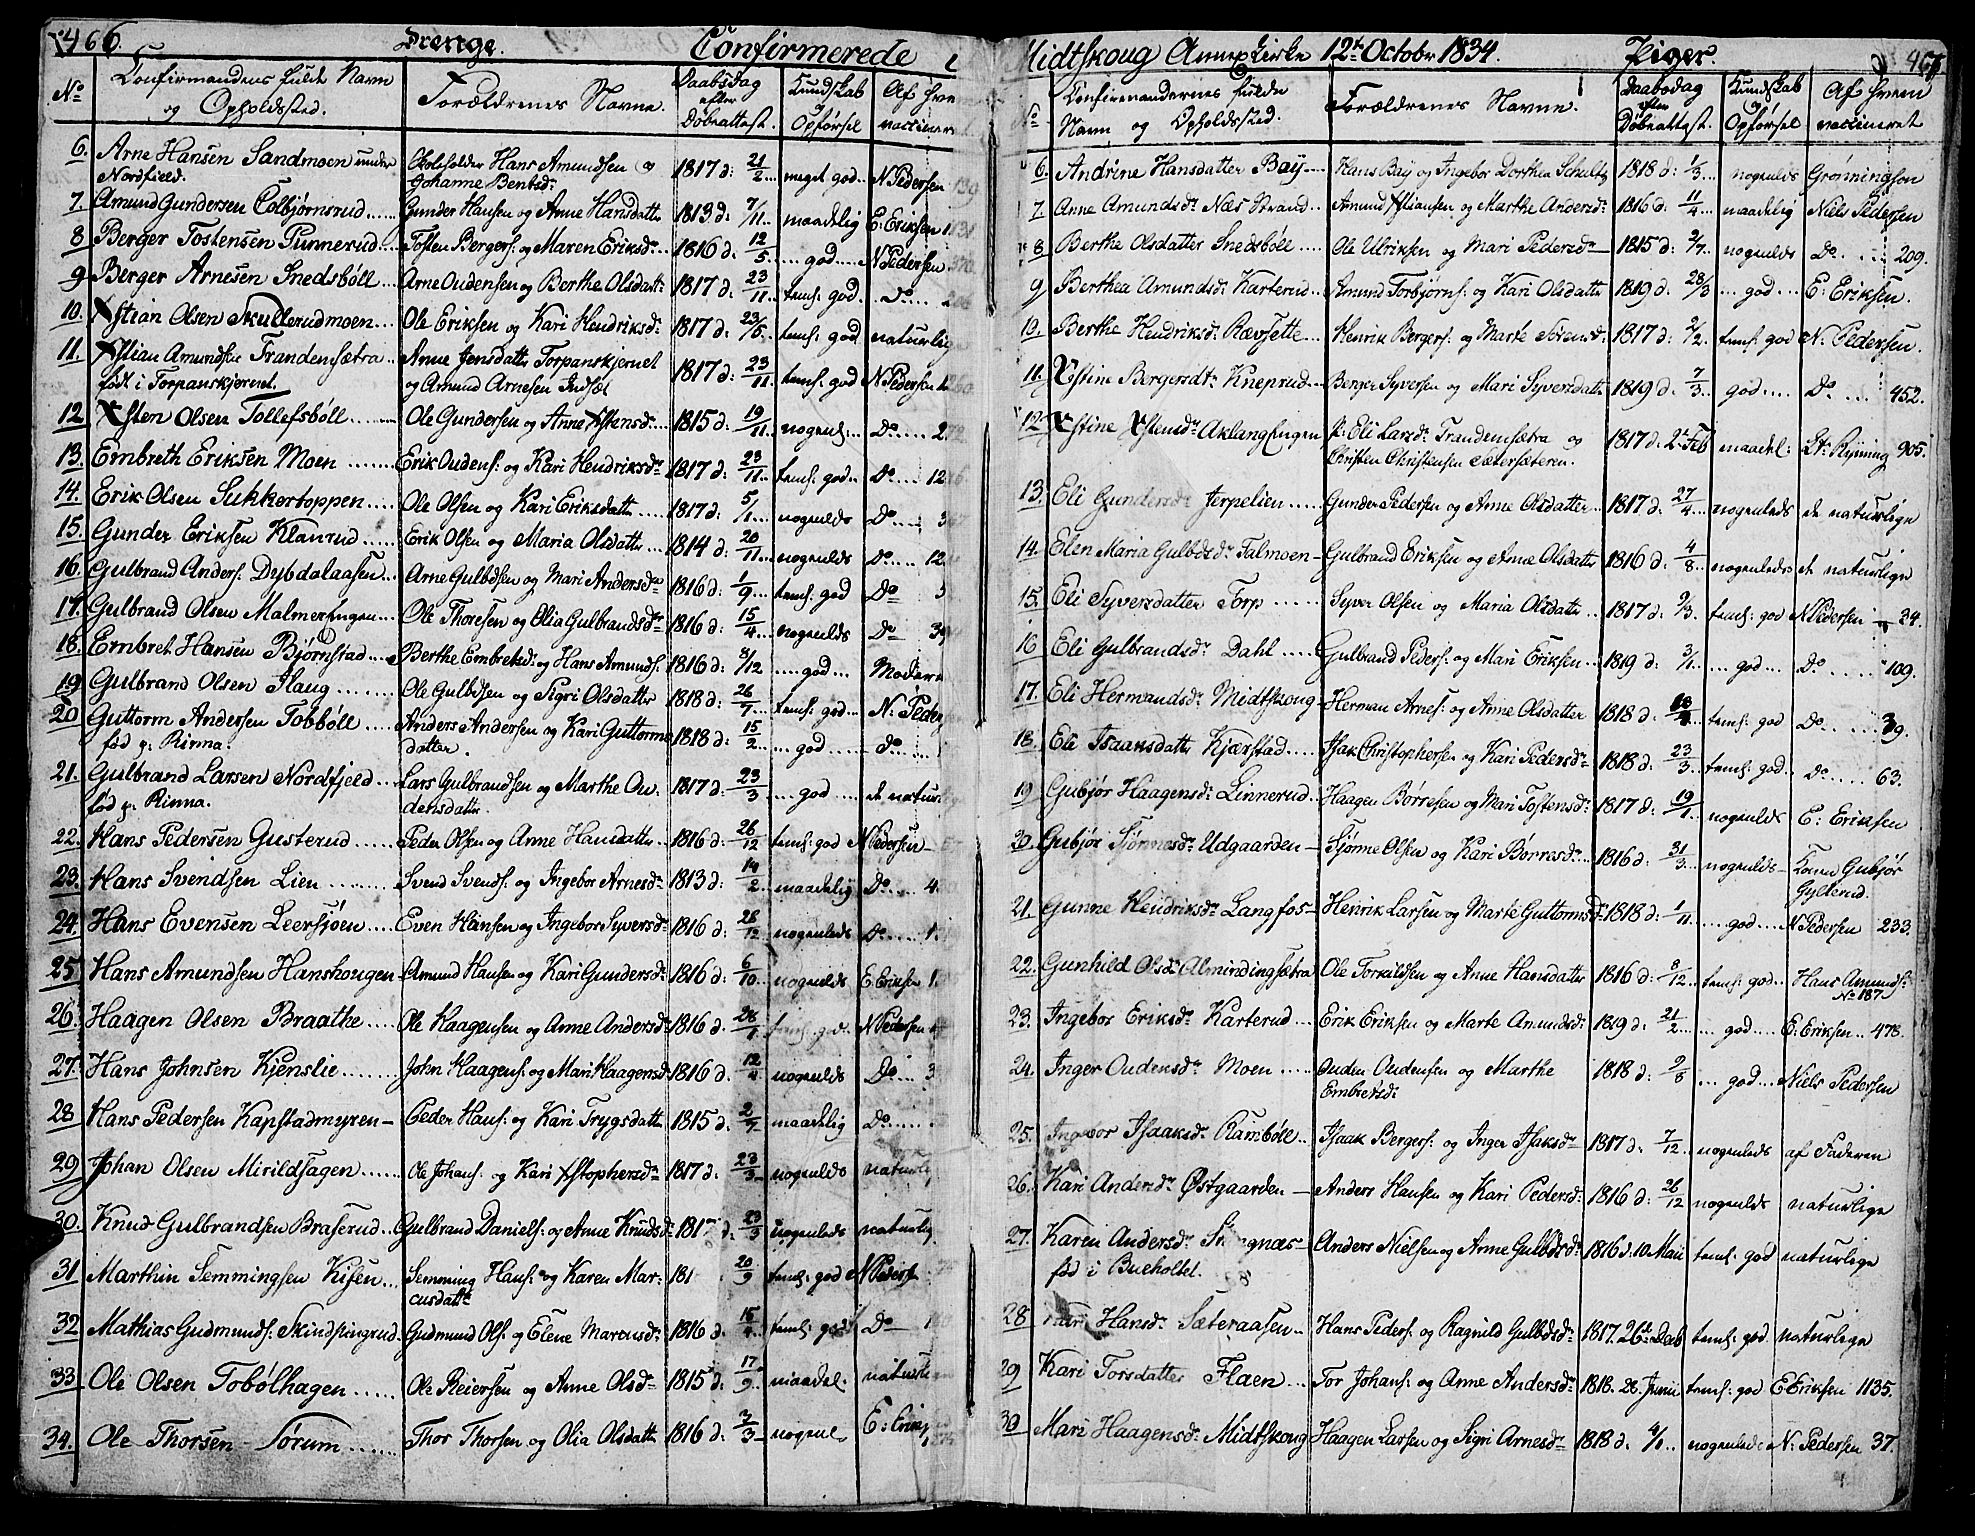 466.
Drenge.
Confirmerede
No
Confirmandens fulde Navn
og Opholdssted.
Forældrenes Navne.
Daabsdag
efter
Døbeattest.
Kundskab
og
Opførsel
Af hvem
vaccineret
6. Arne Hansen Sandmoen under
Nordfield. Hans Amundsen og
Johanne Bentsd: 1817 d: 21/2 ... meget god.. N Pedersen
7. Amund Gundersen Colbjørnsrud ...... Gunder Hansen og Anne Hansdatter 1813 d: 7/11 ... maadelig E: Eriksen
8 Berger Tostensen Punnerud ... Tosten Bergers: og Maren Eriksd: ... 1816 d: 12/5 .... god .... N Pedersen
9 Berger Arnesen Snedsböll .... Arne Oudensen og Berthe Olsdatt: 1817 d: 23/11 .. teml: god .. Do ...
10. Xstian Olsen Skullerudmoen ... Ole Eriksen og Kari Hendriksd: 1817 d: 23/5 . teml: god naturlig
11. Xstian Amundsen Trandemsætra ..
født i Torpanskjernet. Anne Jensdatter Torpanskjernet
og Amund Arnesen Indsøt 1817 d: 23/11 . teml: god N Pedersen
12 Xsten Olsen Tollefsböll ......... Ole Gundersen og Anne Xstensd: .... 1815 d: 19/11 .. nogenl: ... Do ....
13. Embreth Eriksen Moen ....... Erik Oudens: og Kari Hendriksd: 1817 d: 23/11 . teml: god .. Do ....
14. Erik Olsen Sukkertoppen ..... Ole Olsen og Kari Eriksdatter ..... 1817 d: 5/1 .... nogenlds Do ....
15. Gunder Eriksen Klanrud ...... Erik Olsen og Maria Olsdatter ... 1814 d: 20/11 ... nogenlds Do ....
16. Gulbrand Anders: Dybdalaasen ... Arne Gulbdsen og Mari Andersd: 1816 d: 1/9 ... teml: god Do
17. Gulbrand Olsen Malmerengen ... Ole Thoresen og Olia Gulbrandsd: 1816 d: 15/4 .... nogenlds Do
18. Embret Hansen Björnstad .... Berthe Embretsd: og Hans Amunds: 1816 d: 8/12 .... god ....
19 Gulbrand Olsen Haug ........ Ole Gulbdsen og Sigri Olsdatter 1818 d: 26/7 .... teml: god ... N: Peder
20 Guttorm Andersen Tobböll ....
fød p: Rinna. Anders Andersen og Kari Guttorms
datter. 1818 d: 15/2 .... god ..... Do ....
21. Gulbrand Larsen Nordfjeld ...
fød p: Rinna. Lars Gulbrandsen og Marthe Ou-
densdatter. 1817 d: 23/3 .... god ..... de natur
22. Hans Pedersen Gusterud ..... Peder Olsen og Anne Hansdatter .. 1816 d: 26/12 teml: god N Pedersen
23. Hans Svendsen Lien ......... Svend Svends: og Ingebor Arnesd: 1813 d: 14/2 .. maadelig Do ....
24. Hans Evensen Leersjøen .... Even Hansen og Ingebor Syversd: 1816 d: 26/12 nogenlds Do .....
25 Hans Amundsen Hanskougen Amund Hansen og Kari Gundersd: 1816 d: 6/10 ... nogenlds E: Eriksen
26. Haagen Olsen Braathe ..... Ole Haagensen og Anne Andersd: 1816 d: N Pedersen
27. Hans Johnsen Kjenslie ....... John Haagens: og Mari Haagensd: 1816 d: 12/4 . nogenlds Do ....
28 Hans Pedersen Kapstadmyren — Peder Hans: og Kari Trygsdatter 1815 d: 2/7 . maadelig Do .....
29 Johan Olsen Mirildhagen ...... Ole Johans: og Kari Xstophersd: 1817 d: 23/3 . nogenlds naturlig
30. Knud Gulbrandsen Braserud ... Gulbrand Daniels: og Anne Knudsd: 181 d: 23/3 nogenlds naturlig
31 Marthin Semmingsen Kisen .... Semming Hans: og Karen Mar-
cusdatter 181 20/9 teml: god N Peders
32 Mathias Gudmunds: Skindpungrud. Gudmund Ols: og Elene Marcusd: 1816 d: 15/4 teml: god Do
33 Ole Olsen Tobölhagen ...... Ole Reiersen og Anne Olsd: 1815 d: 17/9 . maadel.
34. Ole Thorsen Sörum ...... Thor Thorsen og Olia Olsdatter 1816 d: 3/3 — nogenl. E: Erik
Midtskoug Annex Kirke 12te October 1834.
Piger.
467
No
Confirmandernes fulde
Navn og Opholdssted.
Forældrenes Navne.
Daabsdag
efter
Døbeattest.
Kundskab
og
Opførsel
Af hvem
vaccineret
6. Andrine Hansdatter Bay .... Hans Bay og Ingebor Dorthea Schultz 1818 d: 1/3 ... nogenlds Grønningson
7. Anne Amundsd: Næs Strand .. Amund Xstiansen og Marthe Andersd: 1816 d: 11/4 ... maadelig Niels Pedersen
8 Berthe Olsdatter Snedsböll .... Ole Ulriksen og Mari Pedersd: 1815 d: 2/7 . nogenlds Do .... 209.
9 Berthea Amundsd: Karterud .. Amund Torbjørns: og Kari Olsdatter 1819 d: 28/3 ... god ... E: Eriksen.
10. Berthe Hendriksd: Rævsette ... Henrik Bergers: og Marte Sörensd: 1817 d: 2/2 .. teml: god N: Pedersen.
11. Xstine Bergersdt: Kneprud ... Berger Syversen og Mari Syversdatter 1819 d: 7/3 ... god .... Do .... 452.
12 Xstine Xstensd: Aklangengen p: Eli Larsd: Trandemsætra og
Christen Christensen Sætersæteren. 1817 d: 2t Feb maadel: Lt: Ryning 905.
13. Eli Gundersd: Jerpelien ..... Gunder Pedersen og Anne Olsdatter .. 1817 d: 27/4 ... nogenleds de naturlige
14. Elen Maria Gulbdsd: Talmoen — Gulbrand Eriksen og Anne Olsdatter 1816 d: 4/8 ... nogenleds de naturlige
15. Eli Syversdatter Torp ...... Syver Olsen og Maria Olsdatter .. 1817 d: 9/3 . teml: god N Pedersen 24.
16 Eli Gulbrandsd: Dahl .... Gulbrand Peders: og Mari Eriksen .. 1819 d: 3/1 ... god ... Do .... 109.
17. Eli Hermandsd: Midtskoug — Herman Arnes: og Anne Olsdatter 1818 d: teml: god Do ...... 39.
18. Eli Isaaksdatter Kjærstad ..... Isak Christophersen og Kari Pedersd: 1818 d: 23/3 ... teml: god .. Do ..... 63.
19 Gubjör Haagensd: Linnerud .. Haagen Börresen og Mari Tostensd: 1817 d: 19/1 nogenlds E: Eriksen
20. Gubjör Tjönnesd: Udgaarden — Tjönne Olsen og Kari Börresd: .. 1816 d: 31/3 .. nogenlds — Kone Gubjör
Gylterud.
21. Gunne Hendriksd: Langfos — Henrik Larsen og Marte Guttormsd: 1818 d: 1/11 .... god .... N Pedersen 233.
22. Gunhild Olsd: Almindingsætra Ole Torkildsen og Anne Hansdatter 1816 d: 8/12 . teml: god .. Hans Amunds:
No 187
23. Ingebor Eriksd: Karterud ... Erik Eriksen og Marte Amundsd: 1819 d: 21/2 .... god .... E: Eriksen .. 478.
24. Inger Oudensd: Moen ...... Ouden Oudensen og Marthe
Embretsd: 1818 d: 9/8 ... god ... Niels Pedersen
25. Ingebor Isaaksd: Ramböll .. Isaak Bergers: og Inger Isaksd: 1817 d: 7/12 . nogenleds af Faderen
26. Kari Andersd: Østgaarden — Anders Hansen og Kari Pedersd: 1816 d: 26/12 nogenlds naturlige
27. Karen Andersd: Strangnæs —
fød i Bueholtet. Anders Nielsen og Anne Gulbdsd: 1816 d. 10. Mari teml: god naturlige
28 Kari Hansd: Sæteraasen .. Hans Peders: og Ragnild Gulbdsd: 1817. 26t: Decb teml: god naturlige
29 Kari Torsdatter Flaen ... Tor Johans: og Anne Andersd: 1818. 28 Junii teml: god E Eriksen 1135.
30 Mari Haagensd: Midtskoug Haagen Larsen og Sigri Arnesd: 1818 d. 4/1 .. nogenleds N: Pedersen 37.